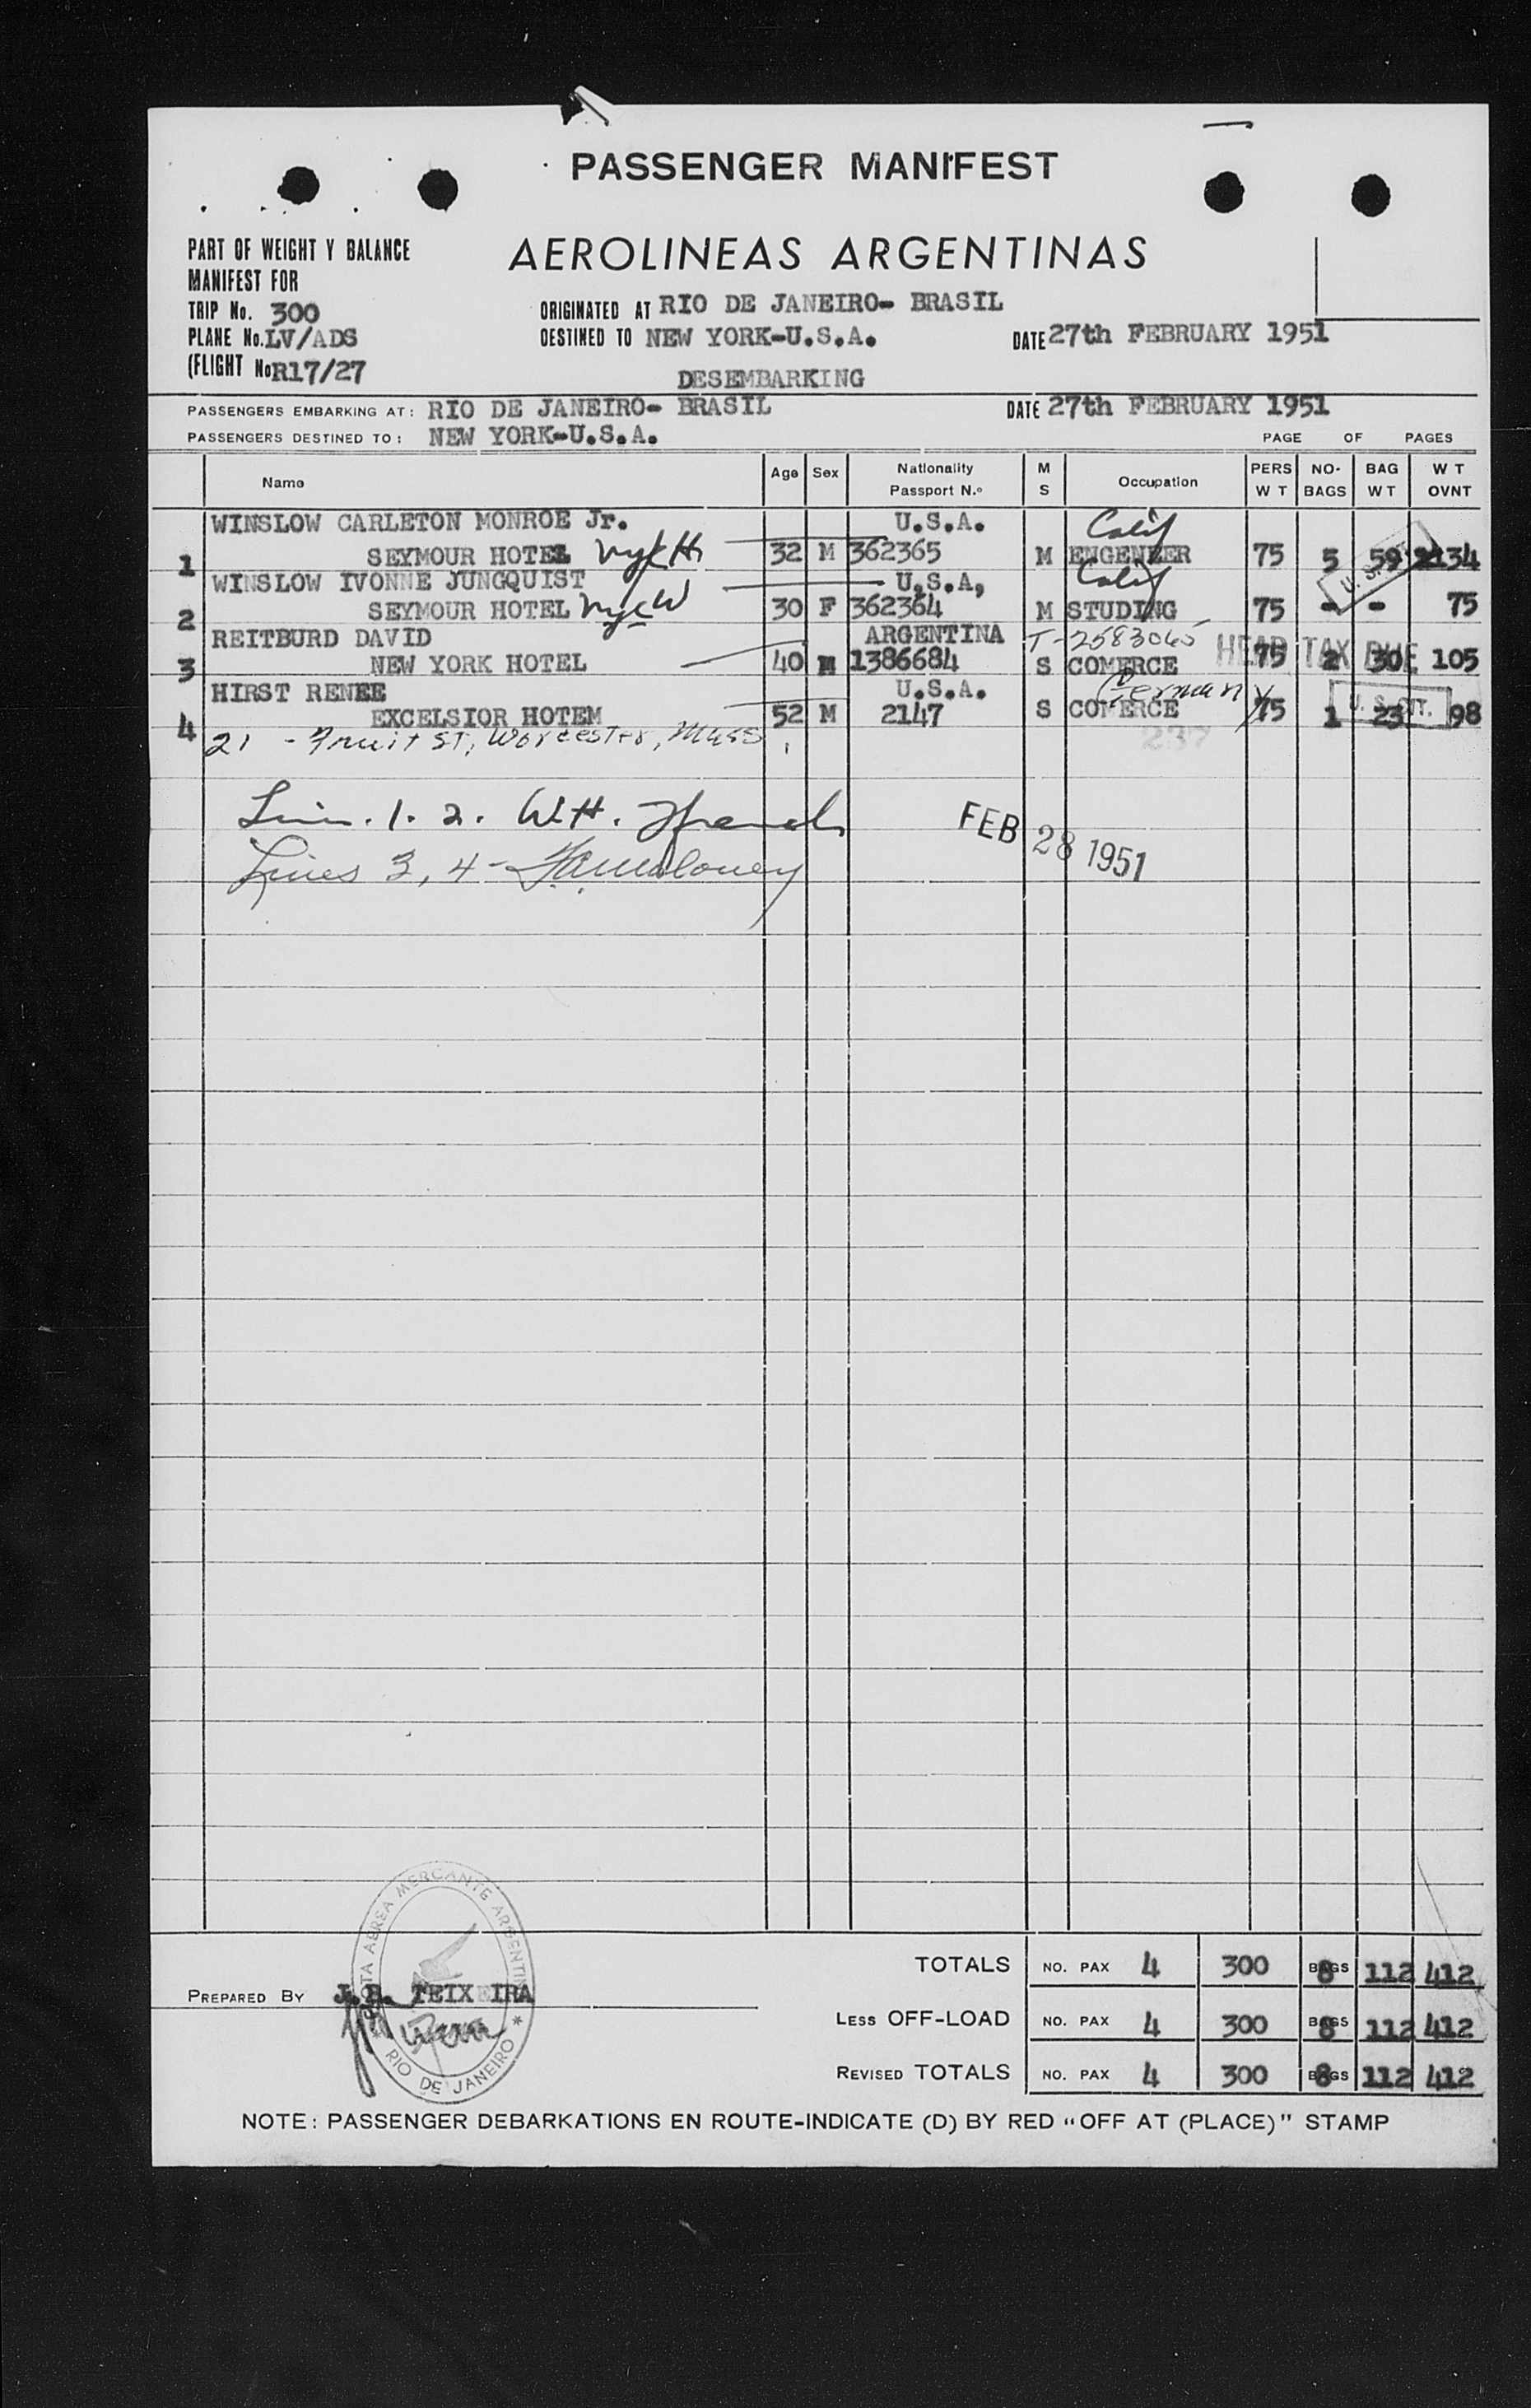 PASSENGER MANIFEST
PART OF WEIGHT Y BALANCE
MANIFEST FOR
AEROLINEAS ARGENTINAS
TRIP No. 300
ORIGINATED AT RIO DE JANEIRO- BRASIL
PLANE No. LV/ADS
DESTINED TO NEW YORK-U.S.A.
DATE 27th FEBRUARY 1951
(FLIGHT No R17/27
DESEMBARKING
PASSENGERS EMBARKING AT: RIO DE JANEIRO- BRASIL
DATE 27th FEBRUARY 1951
PASSENGERS DESTINED TO: NEW YORK-U.S.A.
PAGE OF PAGES
Name Age Sex Nationality Passport N.º M S Occupation PERS W T NO- BAGS BAG W T W T OVNT
WINSLOW CARLETON MONROE Jr. U.S.A. Calif
1 SEYMOUR HOTEL 32 M 362365 M ENGENEER 75 5 59 134
WINSLOW IVONNE JUNGQUIST U.S.A, Calif
2 SEYMOUR HOTEL nyc W 30 F 362364 M STUDING 75 - - 75
REITBURD DAVID ARGENTINA T-2583065
3 NEW YORK HOTEL 40 M 1386684 S COMERCE 75 2 30 105
HEAD TAX DUE
HIRST RENEE U.S.A. German
4 EXCELSIOR HOTEM 52 M 2147 S COMERCE 75 1 23 98
U. S. CIT.
21 - Fruit ST, Worcester, Mass.
237
1. 2. W.H.
FEB 28 1951
Lines 3, 4 -
FLOTA AEREA MERCANTE ARGENTINA
RIO DE JANEIRO *
TOTALS NO. PAX 4 300 BAGS 8 112 412
PREPARED BY J.B. TEIXEIRA
LESS OFF-LOAD NO. PAX 4 300 BAGS 8 112 412
REVISED TOTALS NO. PAX 4 300 BAGS 8 112 412
NOTE: PASSENGER DEBARKATIONS EN ROUTE-INDICATE (D) BY RED "OFF AT (PLACE)" STAMP